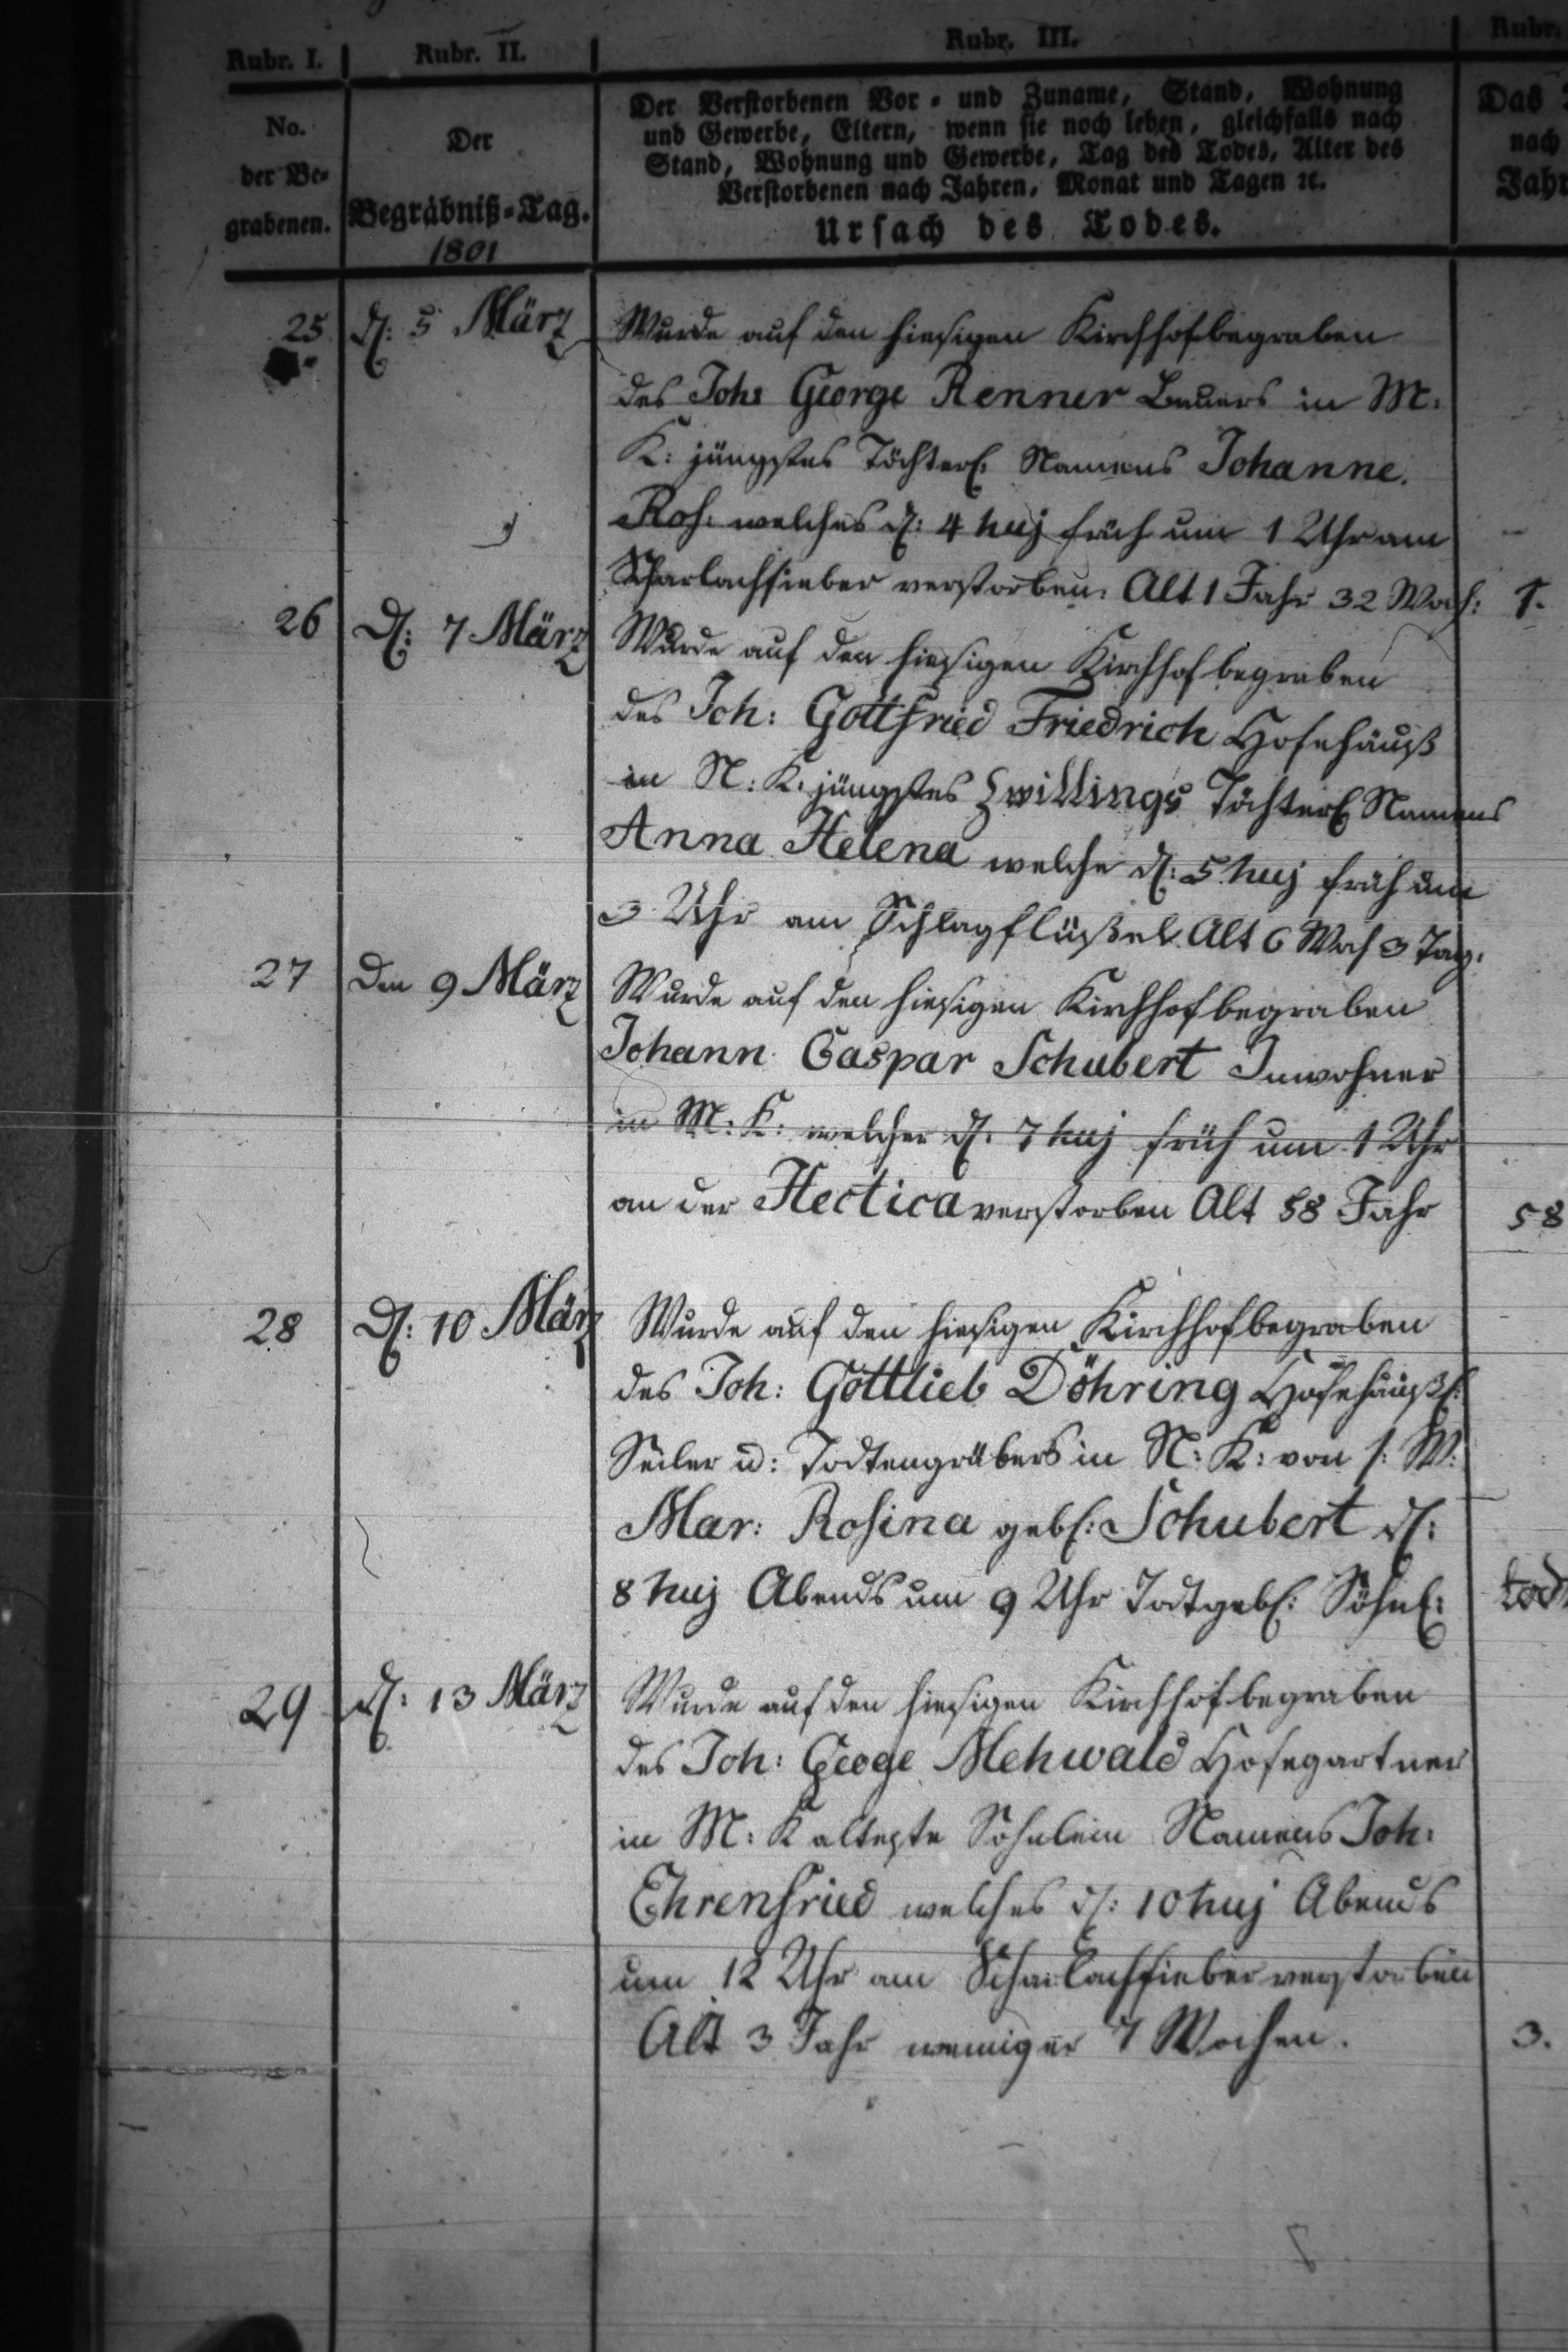 Rubr. I. Rubr. II. Rubr. III. Rubr.
No. der Be- grabenen.
Der Begräbniß-Tag.
1801
Der Verstorbenen Vor- und Zuname, Stand, Wohnung
und Gewerbe, Eltern, wenn sie noch leben, gleichfalls nach
Stand, Wohnung und Gewerbe, Tag des Todes, Alter des
Verstorbenen nach Jahren, Monat und Tagen ꝛc.
Ursach des Todes.
Das
nach
Jahr
25 d: 5 März Wurde auf den hiesigen Kirchhof begraben
des Joh: George Renner Bauers in M:
K: jüngstes Töchterl: Namens Johanne.
Ros: welches d: 4 huj früh um 1 Uhr am
Scharlachfieber verstorben. Alt 1 Jahr 32 Woch: 1.
26 d: 7 März Wurde auf den hiesigen Kirchhof begraben
des Joh: Gottfried Friedrich Hofehäußl
in N: K: jüngstes Zwillings Töchterl Namens
Anna Helena welche d: 5 huj früh um
3 Uhr am Schlagflüßel Alt 6 Woch 3 Tag.
27 den 9 März Wurde auf den hiesigen Kirchhof begraben
Johann Caspar Schubert Inwohner
in M: K: welcher d: 7 huj früh um 1 Uhr
an der Hectica verstorben Alt 58 Jahr 58
28 d: 10 März Wurde auf den hiesigen Kirchhof begraben
des Joh: Gottlieb Döhring Hofehäußl:
Seiler u: Todtengräbers in N: K: von s: W:
Mar: Rosina geb: Schubert d:
8 huj Abends um 9 Uhr Todtgeb: Söhnl: tod
29 d: 13 März Wurde auf den hiesigen Kirchhof begraben
des Joh: Geoge Mehwald Hofegartner
in M: K alteste Sohnlein Namens Joh:
Ehrenfried welches d: 10 huj Abends
um 12 Uhr am Scharlachfieber verstorben
Alt 3 Jahr weniger 7 Wochen. 3.